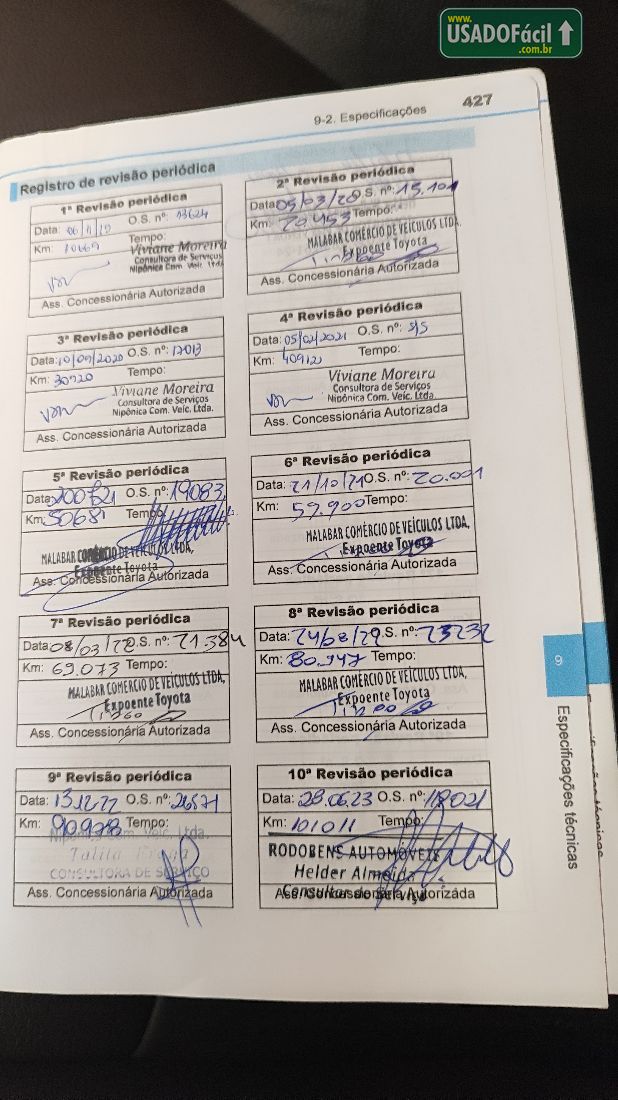 www.
USADOFácil
.com.br
9-2. Especificações
427
Registro de revisão periódica
1ª Revisão periódica
Data: 06/11/19 O.S. nº: 13624
Km: 10669 Tempo:
Viviane Moreira
Consultora de Serviços
Nipônica Com. Veic. Ltda.
Ass. Concessionária Autorizada
2ª Revisão periódica
Data: 05/03/20 O.S. nº: 15.101
Km: 20.453 Tempo:
MALABAR COMÉRCIO DE VEÍCULOS LTDA,
Expoente Toyota
Ass. Concessionária Autorizada
3ª Revisão periódica
Data: 10/09/2020 O.S. nº: 17013
Km: 30920 Tempo:
Viviane Moreira
Consultora de Serviços
Nipônica Com. Veic. Ltda.
Ass. Concessionária Autorizada
4ª Revisão periódica
Data: 05/02/2021 O.S. nº: S/S
Km: 40912 Tempo:
Viviane Moreira
Consultora de Serviços
Nipônica Com. Veic. Ltda.
Ass. Concessionária Autorizada
5ª Revisão periódica
Data: O.S. nº: 19083
Km: 50681 Tempo
MALABAR COMÉRCIO DE VEÍCULOS LTDA,
Expoente Toyota
Ass. Concessionária Autorizada
6ª Revisão periódica
Data: 21/10/21 O.S. nº: 20.001
Km: 59.900 Tempo:
MALABAR COMÉRCIO DE VEÍCULOS LTDA,
Expoente Toyota
Ass. Concessionária Autorizada
7ª Revisão periódica
Data: 08/03/22 O.S. nº: 21.384
Km: 69.073 Tempo:
MALABAR COMÉRCIO DE VEÍCULOS LTDA,
Expoente Toyota
Ass. Concessionária Autorizada
8ª Revisão periódica
Data: O.S. nº: 23232
Km: 80.147 Tempo:
MALABAR COMÉRCIO DE VEÍCULOS LTDA,
Expoente Toyota
Ass. Concessionária Autorizada
9ª Revisão periódica
Data: 13.12.22 O.S. nº: 26571
Km: 90978 Tempo:
Nipônica Com. Veic. Ltda.
Talita
CONSULTORA DE SERVIÇO
Ass. Concessionária Autorizada
10ª Revisão periódica
Data: 28.06.23 O.S. nº: 118021
Km: 101011 Tempo:
RODOBENS AUTOMÓVEIS
Helder Almeida
Consultor de Serviço
Ass. Concessionária Autorizada
9
Especificações técnicas